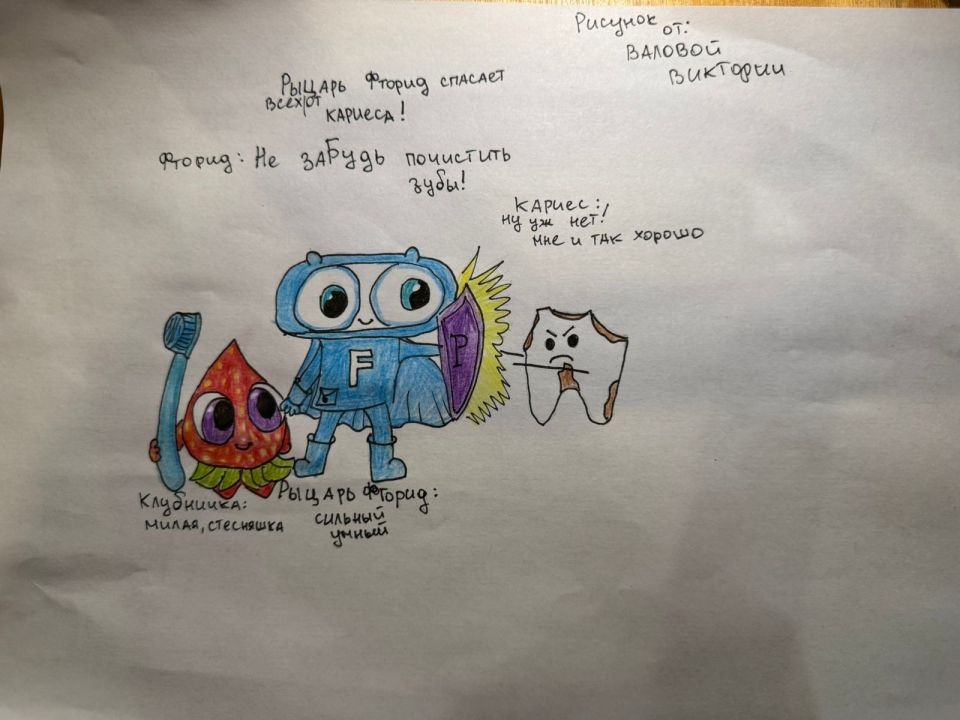 Рисунок от:
Валовой
Виктории
Рыцарь Фторид спасает
всех от
кариеса!
Фторид: Не забудь почистить
зубы!
Кариес:
ну уж нет!
мне и так хорошо
F
P
Клубничка:
милая, стесняшка
Рыцарь Фторид:
сильный
умный